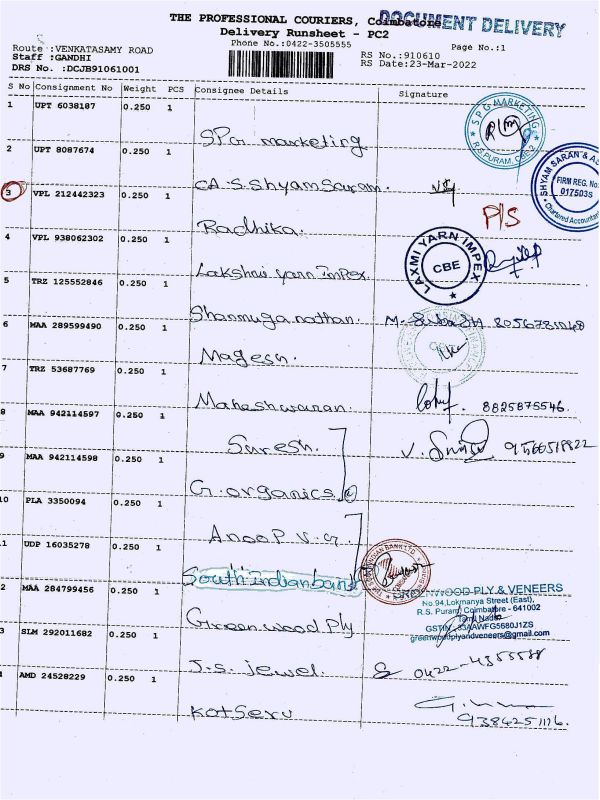 THE PROFESSIONAL COURIERS, Coimbatore
DOCUMENT DELIVERY
Delivery Runsheet - PC2
Phone No.:0422-3505555
Page No.:1
Route :VENKATASAMY ROAD
RS No.:910610
Staff :GANDHI
RS Date:23-Mar-2022
DRS No. :DCJB91061001
S No Consignment No Weight PCS Consignee Details Signature
1 UPT 6038187 0.250 1
SPG marketing
SPG MARKETING R.S.PURAM, CBE-2
2 UPT 8087674 0.250 1
CA.S.Shyam Saram.
SHYAM SARAN & A
FIRM REG. No.
017503S
Chartered Accountan
3 VPL 212442323 0.250 1
P/S
Radhika.
4 VPL 938062302 0.250 1
Lakshmi yarn impex
LAXMI YARN IMPEX
CBE
5 TRZ 125552846 0.250 1
Shanmuganathan.
6 MAA 289599490 0.250 1
Magesh.
7 TRZ 53687769 0.250 1
Maheshwaran. 8825875546.
8 MAA 942114597 0.250 1
Suresh.
9 MAA 942114598 0.250 1
G.organics
10 PLA 3350094 0.250 1
Anoop V.G
1 UDP 16035278 0.250 1
South indian bank
2 MAA 284799456 0.250 1
Greenwood Ply
ENWOOD PLY & VENEERS
No.94,Lokmanya Street (East),
R.S. Puram, Coimbatore - 641002
Tamil Nadu
GSTIN : 33AAWFG5680J1ZS
greenwoodplyandveneers@gmail.com
3 SLM 292011682 0.250 1
J.S. jewel.
AMD 24528229 0.250 1
Kotseru
9384251116.